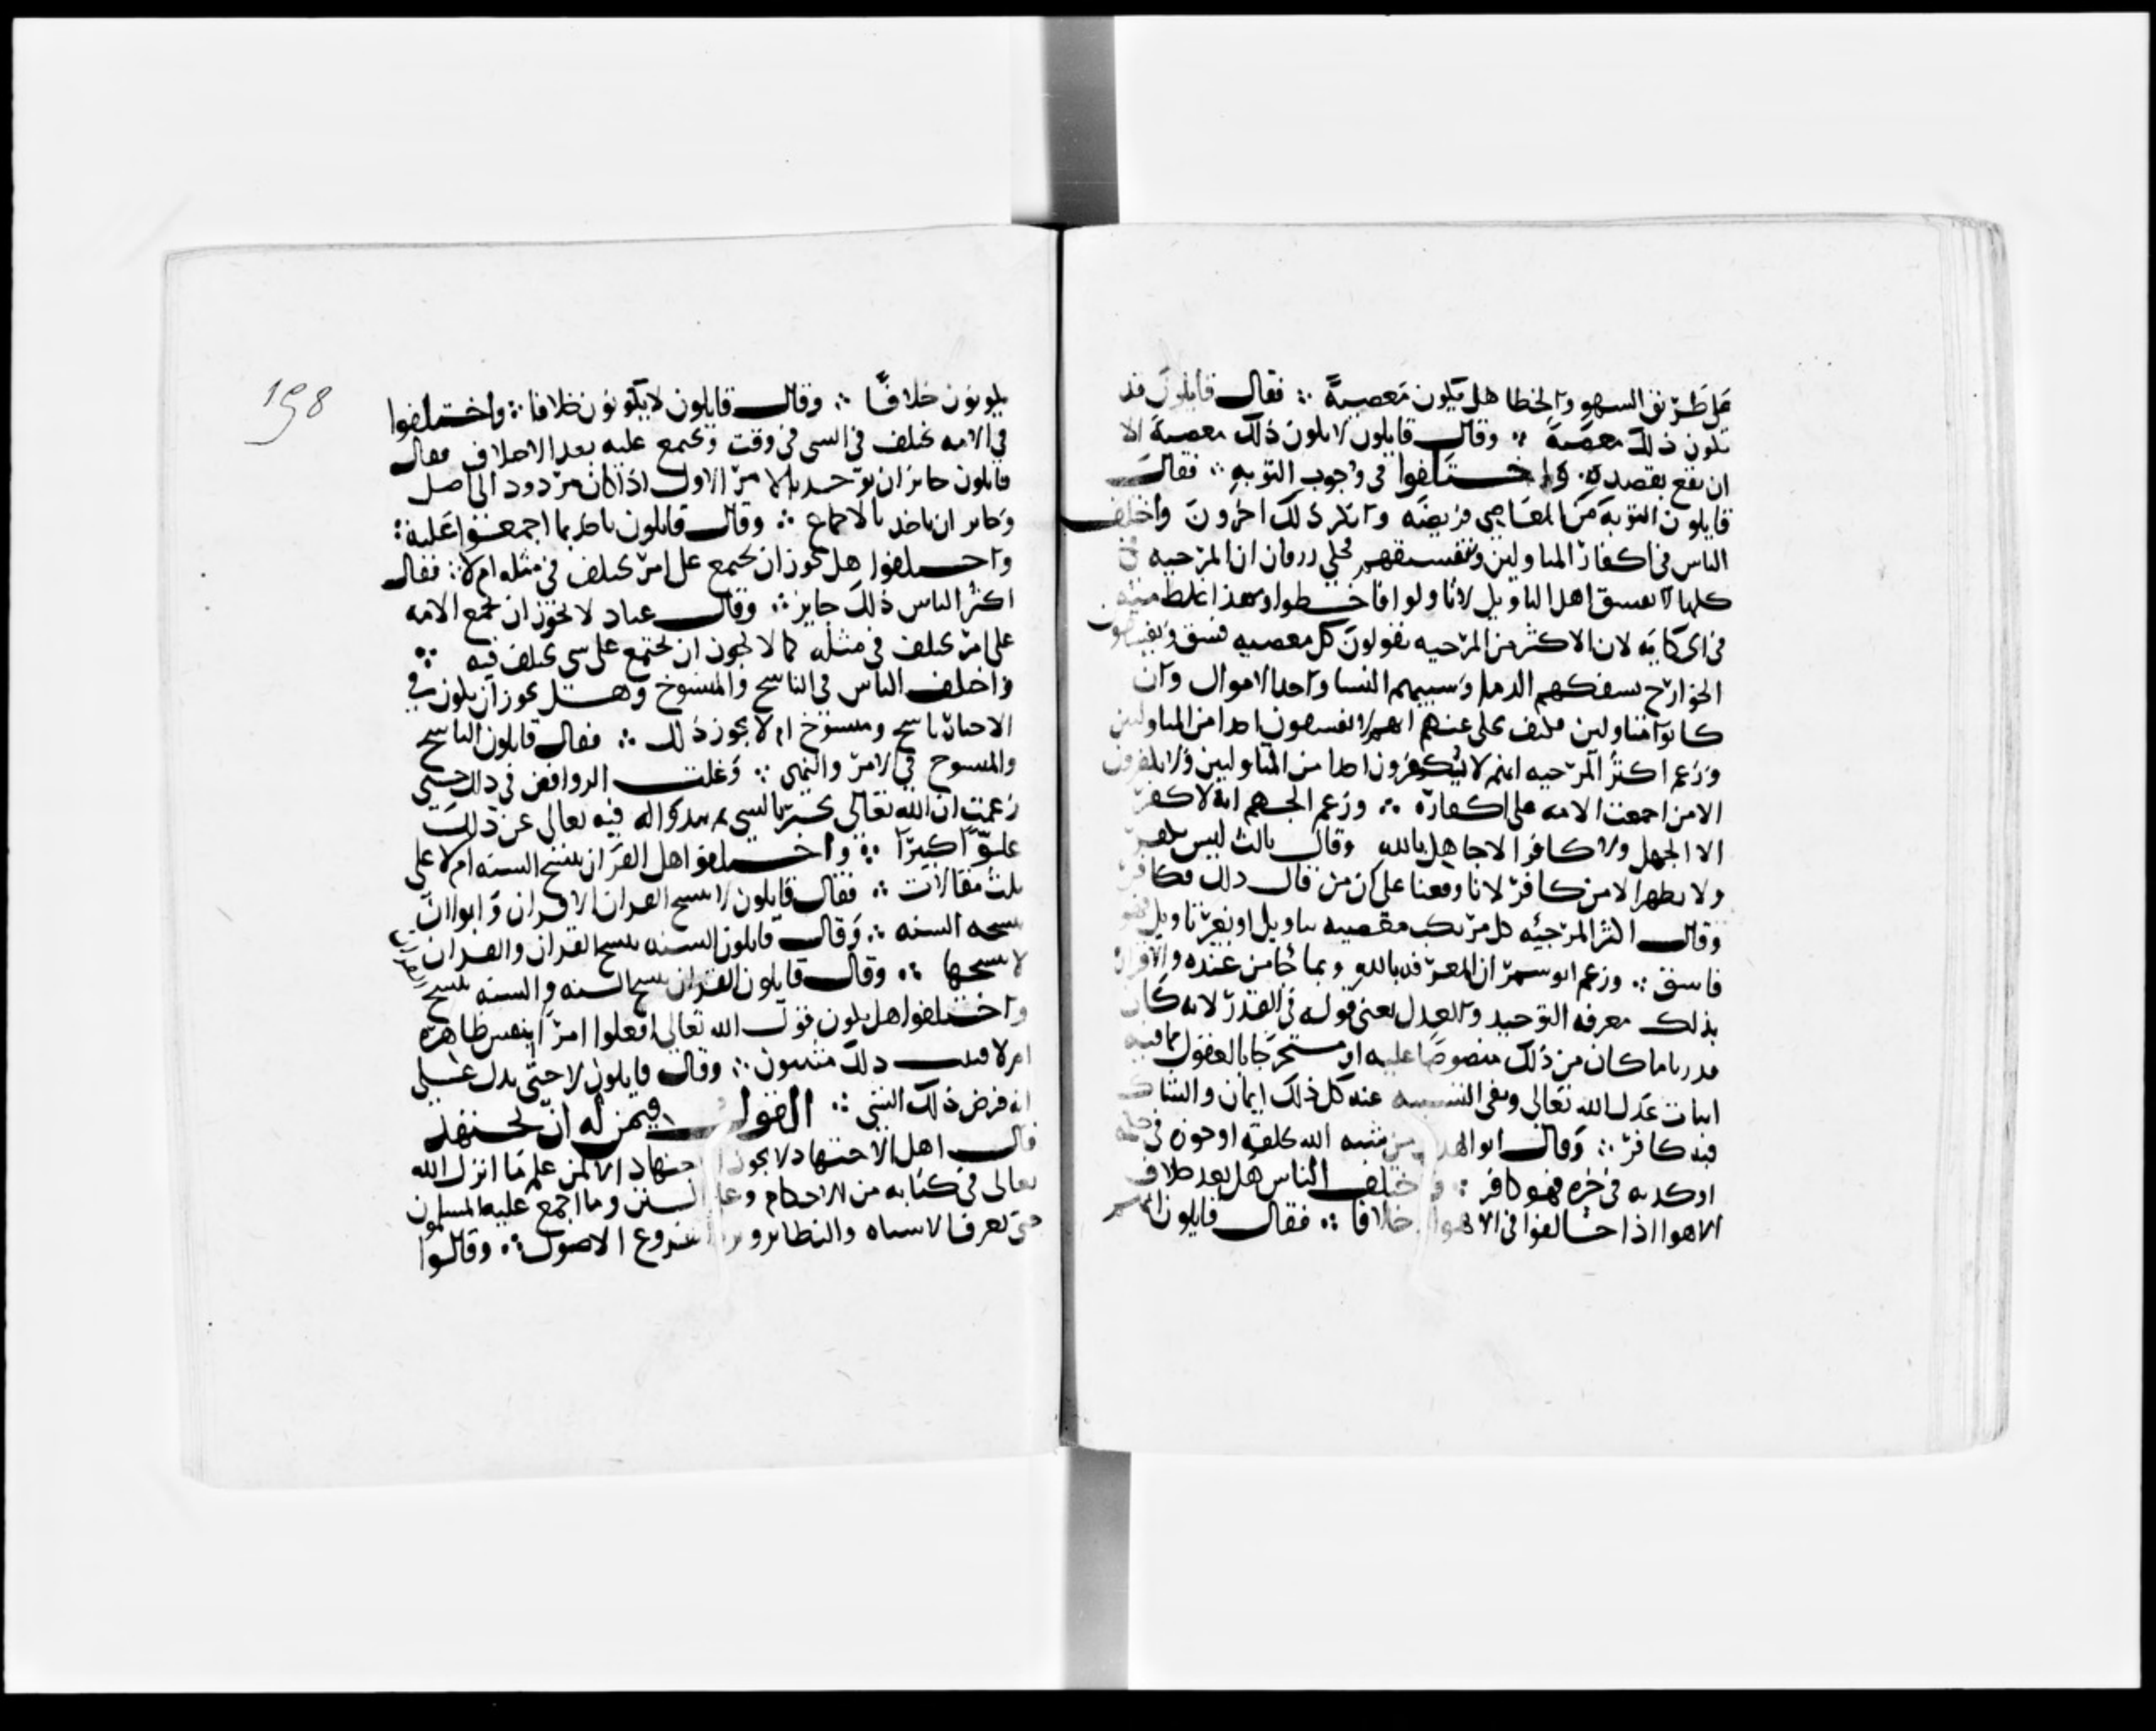 على طريق السهو والخطا هل يكون معصية ∴ فقال قايلون قد
تكون ذلك معصية ∴ وقال قايلون لا يكون ذلك معصية الا
ان تقع بقصده ∴ واختلفوا في وجوب التوبه ∴ فقال
قايلون التوبة من المعاصي فريضه وانكر ذلك اخرون واختلف
الناس في اكفار المتاولين وتفسيقهم فحكى زرقان ان المرجيه
كلها لا تفسق اهل التاويل لانهم تاولوا فاخطوا وهذا غلط منه
في الحكايه لان الاكثر من المرجيه يقولون كل معصيه فسق ويفسقون
الخوارج بسفكهم الدما وسبيهم النسا واخذ الاموال وان
كانوا متاولين فكيف يحكى عنهم انهم لا يفسقون احدا من المتاولين
وزعم اكثر المرجيه انهم لا يكفرون احدا من المتاولين ولا يكفرون
الا من اجمعت الامه على اكفاره ∴ وزعم الجهم انه لا كفر
الا الجهل ولا كافر الا جاهل بالله وقال ثالث ليس بكفر
ولا يظهر الا من كافر لانا وقفنا على ان من قال ذلك فكافر
وقال اكثر المرجئه كل مرتكب معصيه بتاويل او بغير تاويل فهو
فاسق ∴ وزعم ابو شمر ان المعرفه بالله وبما جا من عنده والاقرار
بذلك معرفه التوحيد والعدل يعني قوله في القدر لانه كان
قدريا ما كان من ذلك منصوصا عليه او مستخرجا بالعقول مما فيه
اثبات عدل الله تعالى ونفي التشبيه عنه كل ذلك ايمان والشاك
فيه كافر ∴ وقال ابو الهذيل من شبه الله بخلقه او جوره في حكمه
او كذبه في خبره فهو كافر ∴ واختلف الناس هل يعد خلاف
الاهوا اذا خالفوا في الاهوا خلافا ∴ فقال قايلون
198
يكونون خلافا ∴ وقال قايلون لا يكونون خلافا ∴ واختلفوا
في الامه تختلف في الشي في وقت وتجتمع عليه بعد الاختلاف فقال
قايلون جائز ان يوخذ بالامر الاول اذا كان مردود الى اصل
وجائز ان ياخذ بالاجماع ∴ وقال قايلون ياخذ بما اجمعوا عليه ∴
واختلفوا هل يجوز ان تجتمع على امر تختلف في مثله ام لا ∴ فقال
اكثر الناس ذلك جايز ∴ وقال عباد لا يجوز ان تجمع الامه
على امر تختلف في مثله كما لا يجوز ان تجتمع على شي تختلف فيه ∴
واختلف الناس في الناسخ والمنسوخ وهل يجوز ان يكون في
الاخبار ناسخ ومنسوخ ام لا يجوز ذلك ∴ فقال قايلون الناسخ
والمنسوخ في الامر والنهي ∴ وغلت الروافض في ذلك حتى
زعمت ان الله تعالى يخبر بالشي ثم يبدو له فيه تعالى عن ذلك
علوا كبيرا ∴ واختلفوا هل القران ينسخ السنه ام لا على
ثلث مقالات ∴ فقال قايلون لا ينسخ القران الا قران وابوا ان
تنسخه السنه ∴ وقال قايلون السنه تنسخ القران والقران
لا ينسخها ∴ وقال قايلون القران ينسخ السنه والسنه تنسخ القران
واختلفوا هل يكون قول الله تعالى افعلوا امرا بنفس ظاهره
ام لا فيثبت ذلك مثبتون ∴ وقال قايلون لا حتى يدل على
انه فرض ذلك الشي ∴ القول فيمن له ان يجتهد
قال اهل الاجتهاد لا يجوز الاجتهاد الا لمن علم ما انزل الله
تعالى في كتابه من الاحكام وعلم السنن وما اجمع عليه المسلمون
حتى يعرف الاشباه والنظاير ويرد الفروع الاصول ∴ وقالوا